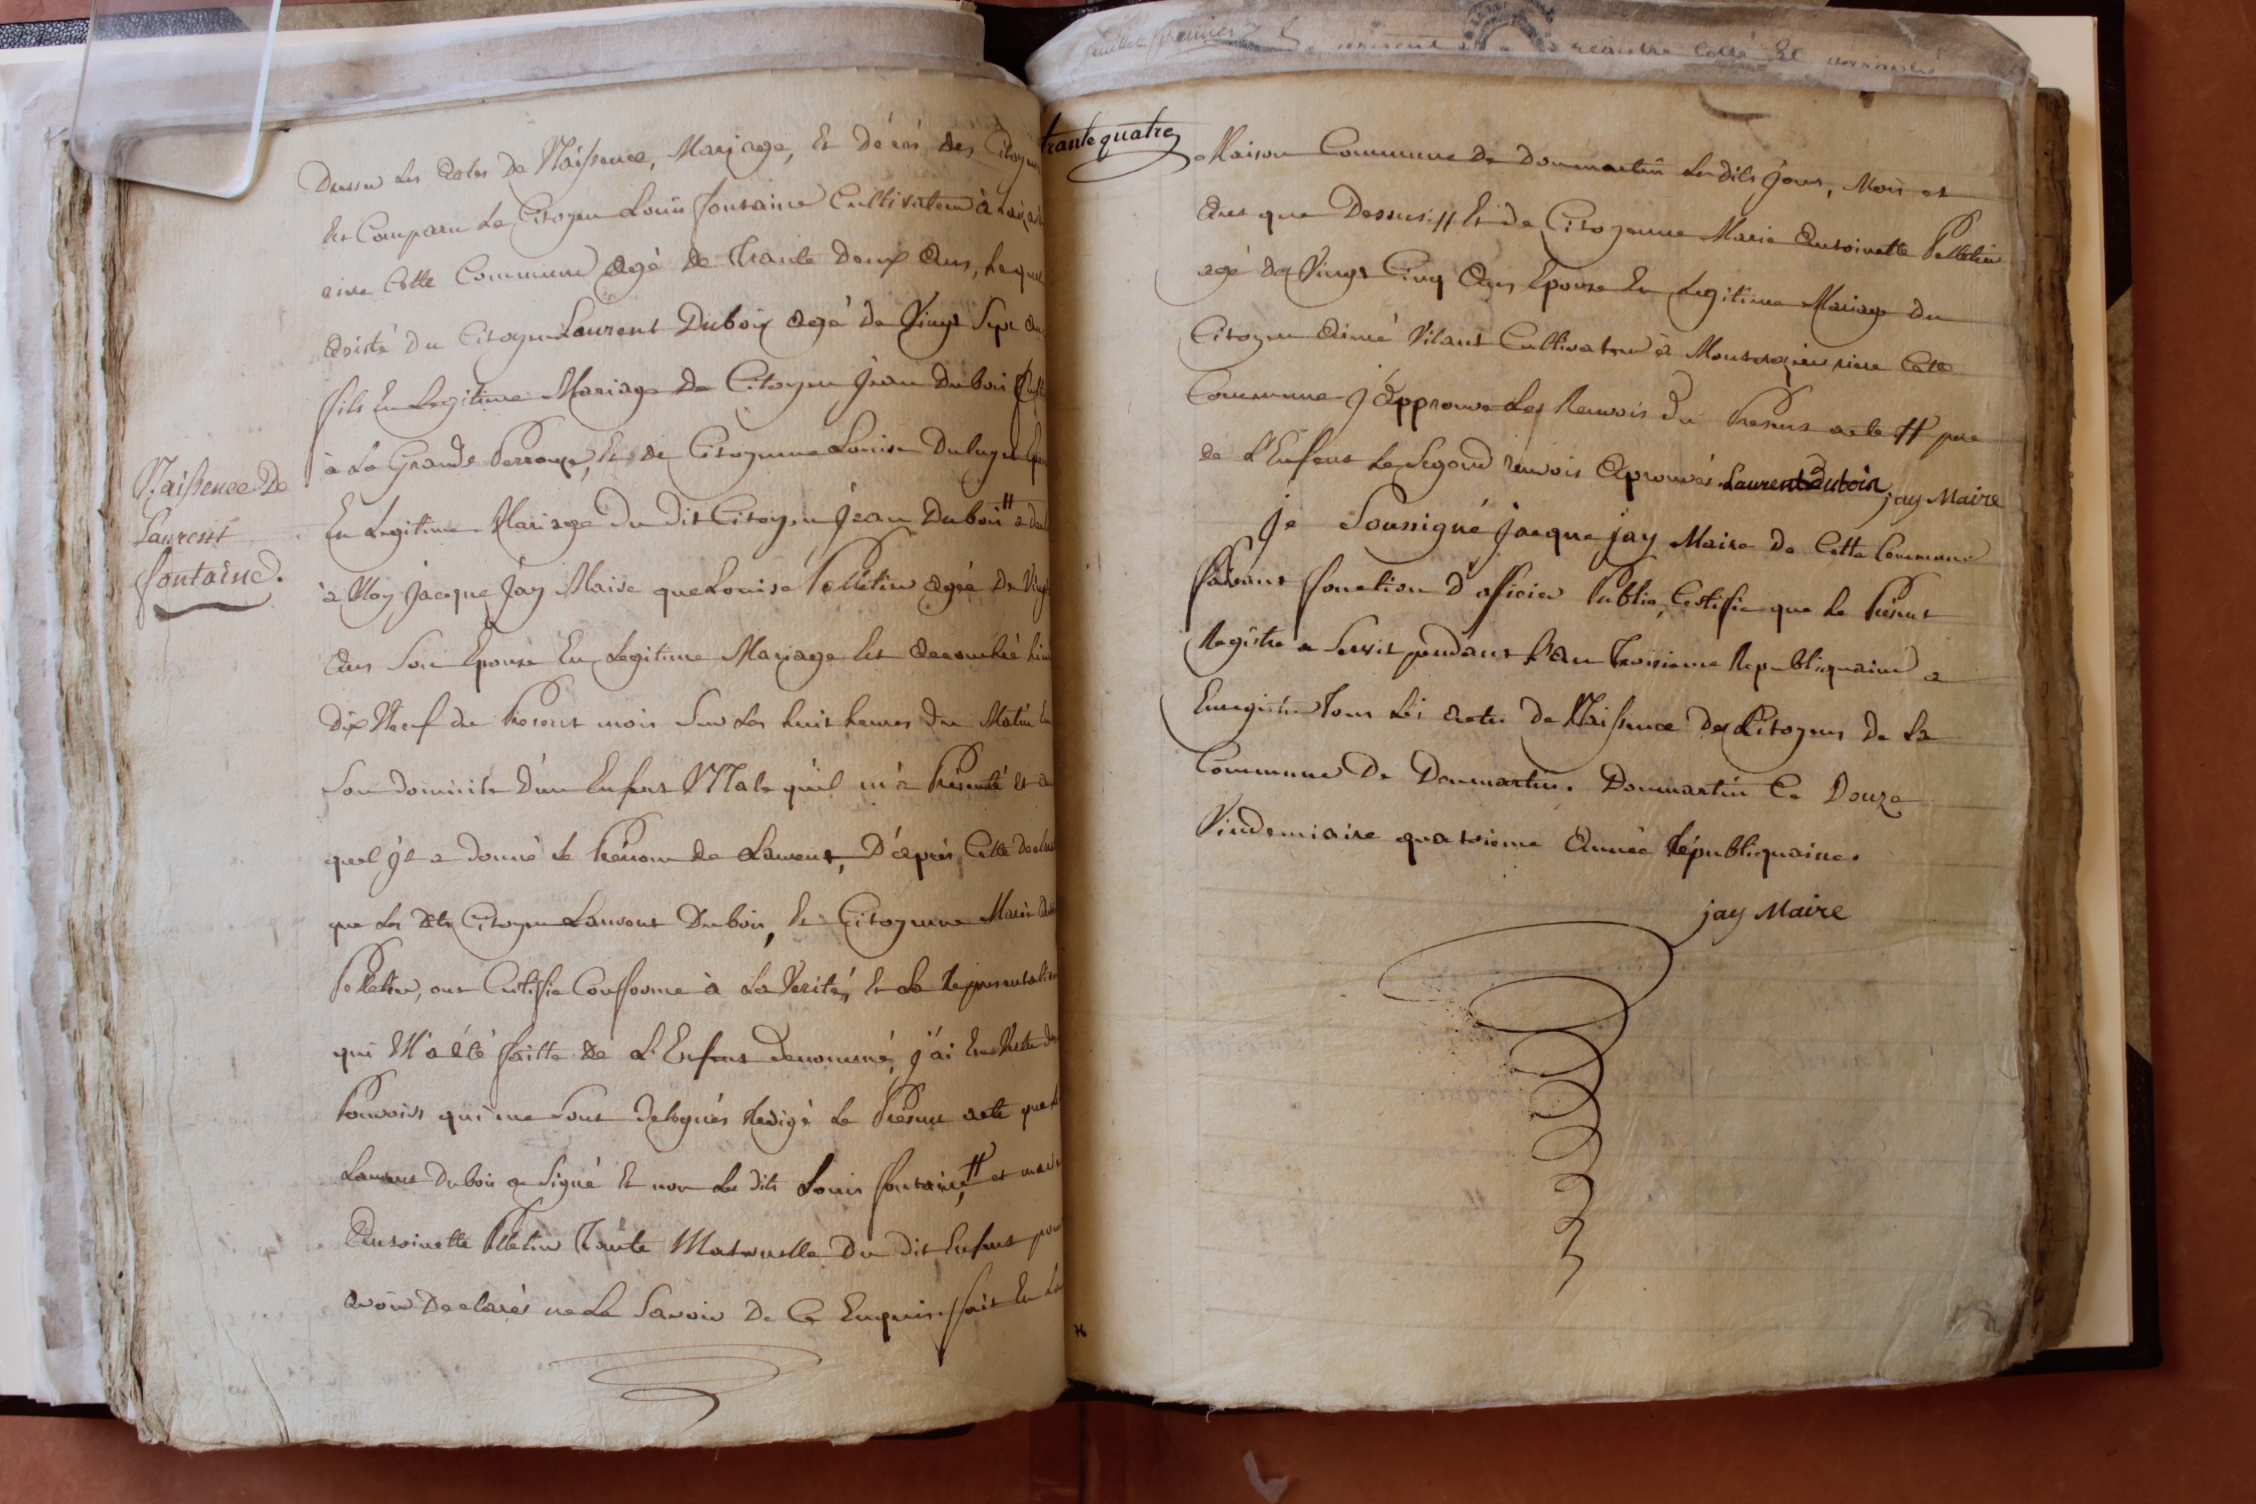 Dresser les actes de Naissence, Mariage, et décés des Citoyens
Est Comparu Le Citoyen Louis fontaine Cultivateur à
cette Commune agé de Trante deux ans, Lequel
asisté du Citoyen Laurent Duboix agé de Vingt Sept ans
fils En Legitime Mariage de Citoyen Jean Duboi
à La Grande et de Citoyenne Louise
En Legitime Mariage du dit Citoyen Jean Duboi # a
à Moy Jacque Jay Maire que Louise Pelletier agée De Vingt
ans Son Epouse En Legitime Mariage Est acouchée hier
Dix Neuf du Present mois Sur Les huit heures du Matin En
Son domicile D'un Enfent Male qu'il m'a Présenté et au
quel jl a donné Le Prénom de Laurent, D'après Cette
que Les dits Citoyen Laurent Duboi, Et Citoyenne Marie
Pelletier, ont Certifié Conforme à La Verité, Et La Representation
qui M'a été faitte de L'Enfent denommé, j'ai En Vertu des
Pouvoirs qui me Sont delegués Redigé Le Présent acte que
Laurent Duboi a Signé Et non Les dits Louis fontaine, # et marie
Antoinette Pelletier Tante Maternelle Du dit Enfent pour
avoir Declarés ne Le Savoir De Ce Enquis. fait En La
Naissence De
Laurent
fontaine.
trante quatre
Maison Commune de Dommartin Les dits Jour, Mois et
ans que Dessus. # Et de Citoyenne Marie Antoinette Pelletier
agé de Vingt Cinq Ans Epouse En Legitime Mariage du
Citoyen Aimé Vilant Cultivateur à riere Cette
Commune j'approuve Les Renvois du Present acte # pere
de L'Enfent Le Segond renvois aprouvés Laurent Duboin jay Maire
Je Soussigné Jacque jay Maire de Cette Commune
faisant fonction D'officier Public, Certifie que Le Présent
Registre a Servit pendant L'an Troisieme Republiquaine a
Enregistre Tous Les actes De Naissence des Citoyens de La
Commune De Dommartin. Dommartin Ce Douze
Vindemiaire quatrieme Année Républiquaine.
jay Maire